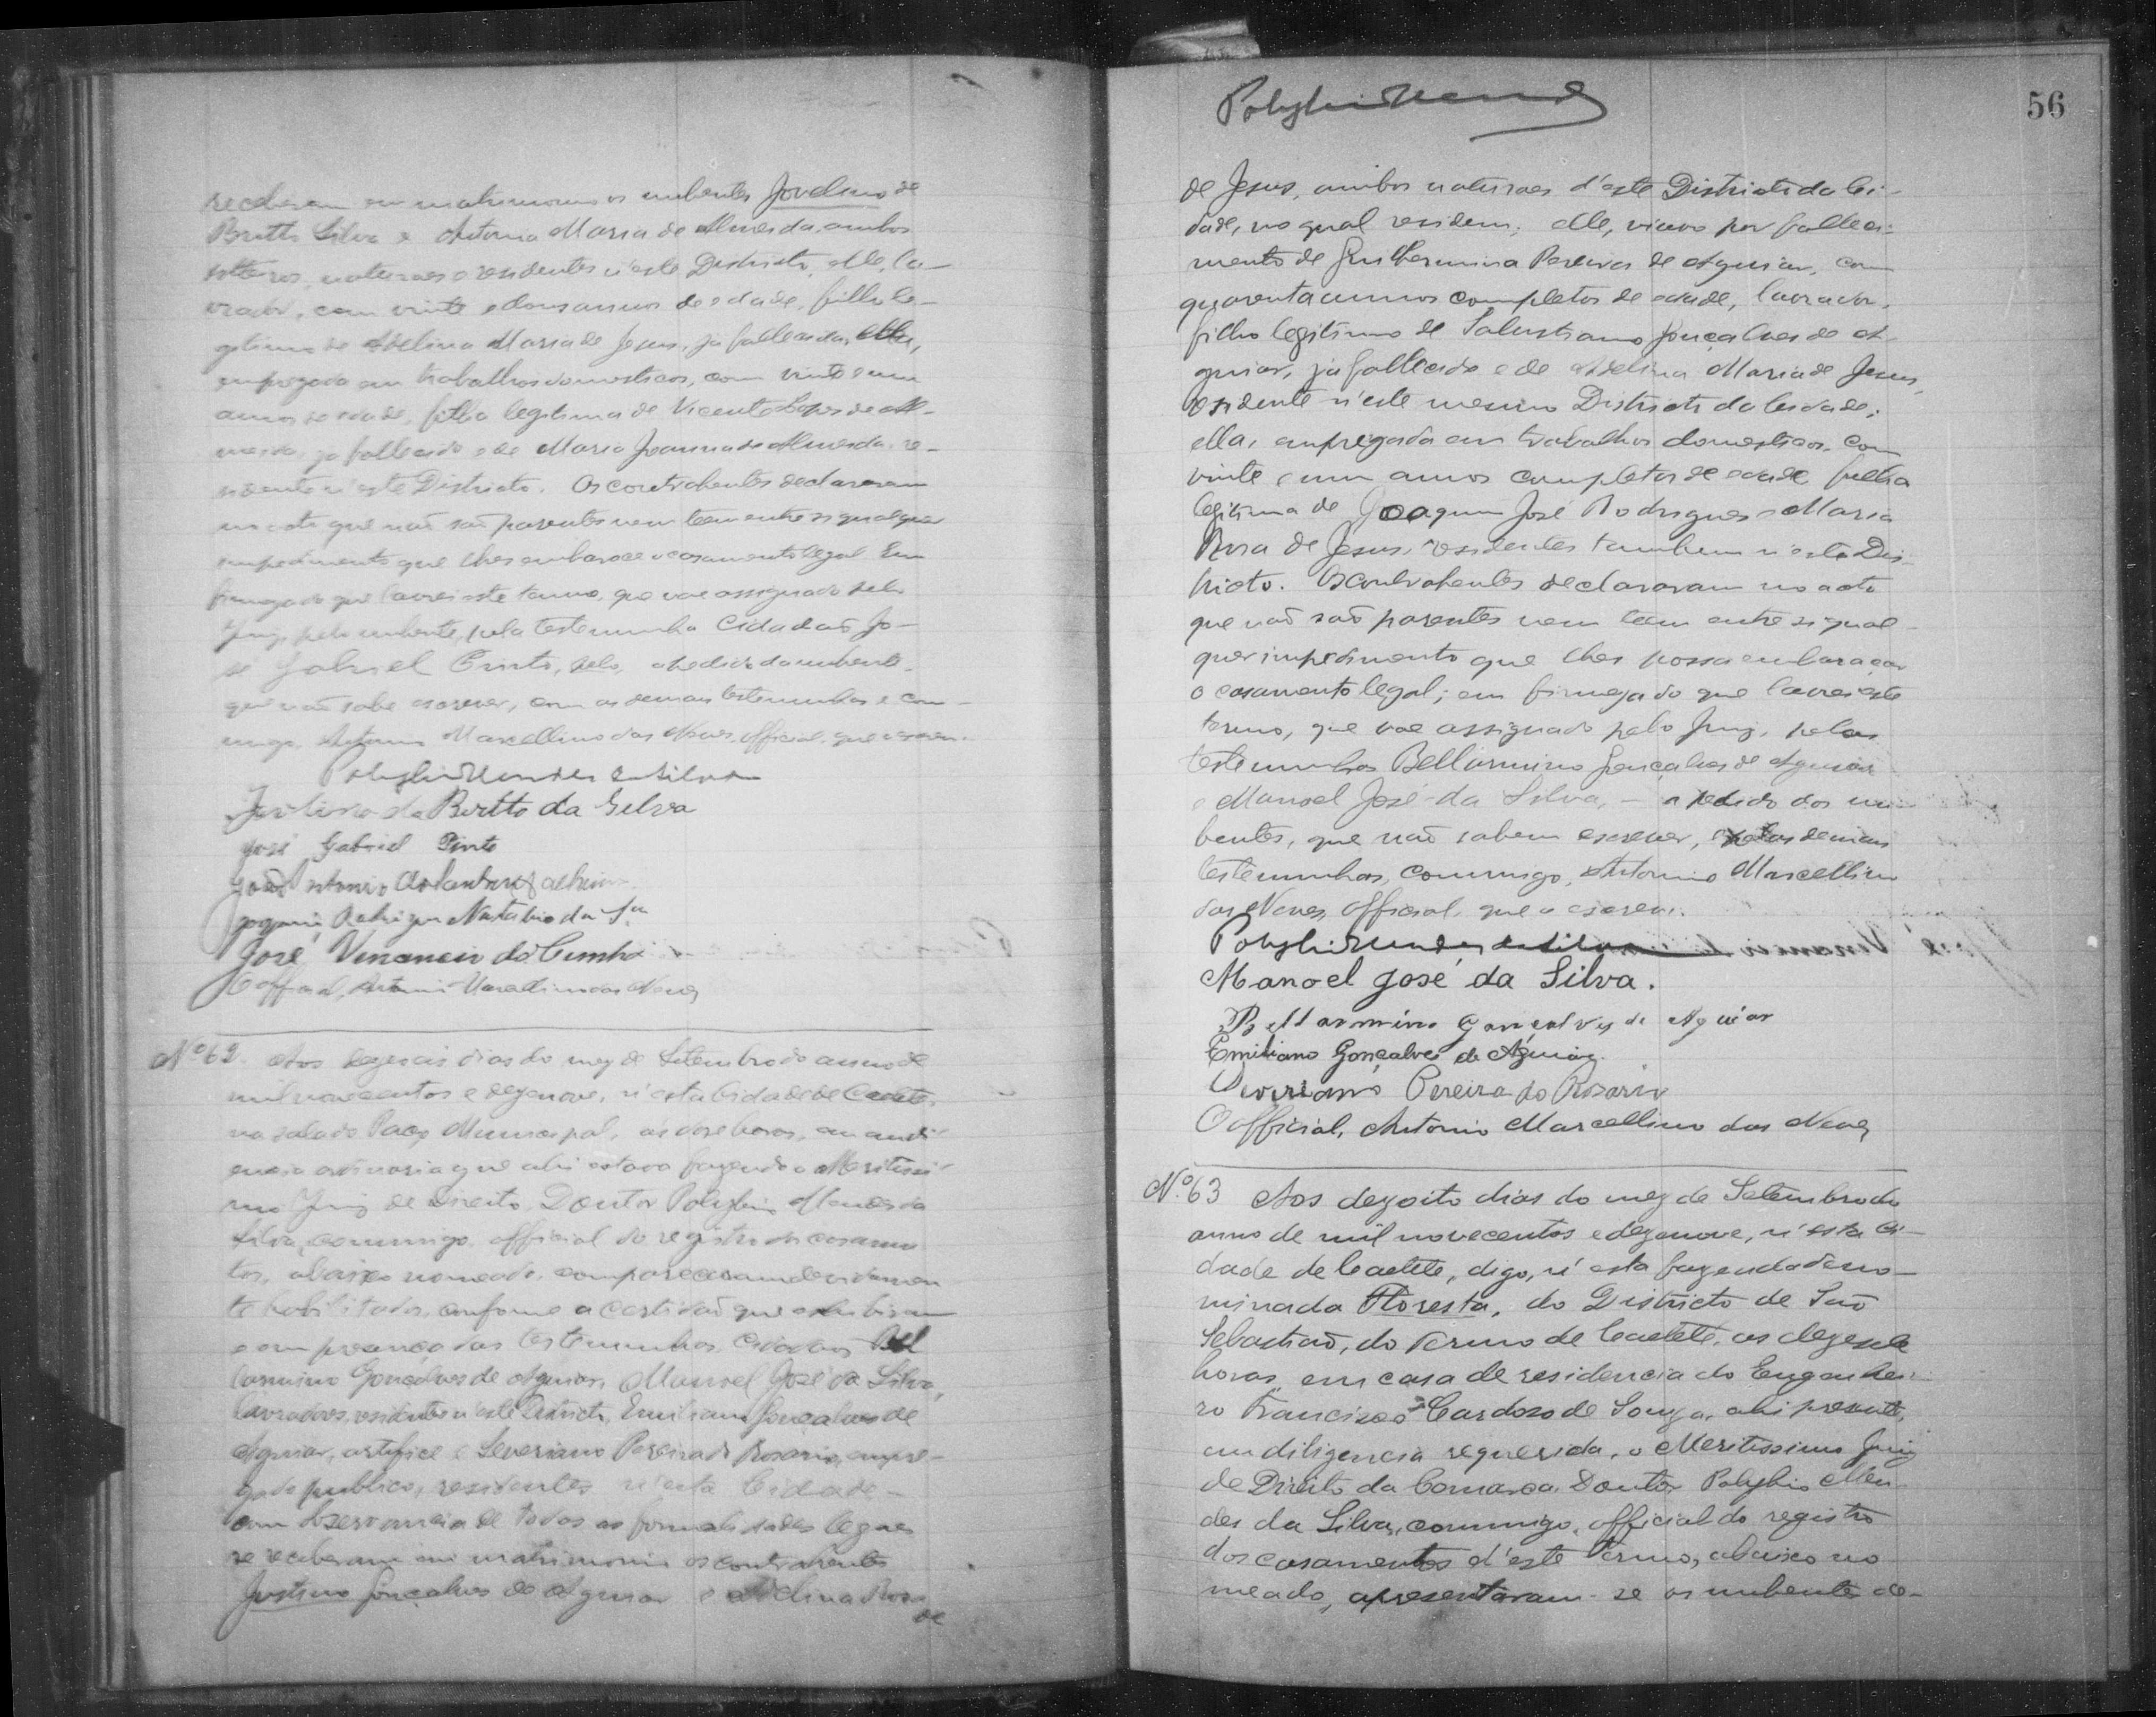 receberam em matrimonio os nubentes Jovelino de
Britto Silva e Antonia Maria de Almeida, ambos
solteiros, naturaes e residentes n'este Districto, elle, la-
vrador, com vinte e dous annos de edade, filho le-
gitimo de Adelina Maria de Jesus, já fallecida, ella,
empregada em trabalhos domesticos, com vinte e um
annos de edade, filha legitima de Vicente Lopes de Al-
meida, já fallecido e de Maria Joanna de Almeida, re-
sidente n'este Districto. Os contrahentes declararam
no acto que não são parentes nem teem entre si qualquer
impedimento que lhes embarace o casamento legal. Em
firmeza do que lavrei este termo, que vae assignado pelo
Juiz, pelo nubente, pela testemunha Cidadão Jo-
sé Gabriel Pinto, pelo, a pedido da nubente
que não sabe escrever, com as demais testemunhas e com-
migo, Antonio Marcellino das Neves, official, que escrevi.
Polybio Mendes da Silva
de Britto da Silva
José Gabriel Pinto
João Antonio
José Venancio da Cunha
O official, Antonio Marcellino das Neves
Nº 62. Aos dezeseis dias do mez de Setembro do anno de
mil novecentos e dezenove, n'esta Cidade de Caeteté,
na sala do Paço Municipal, ás doze horas, em audi-
encia ordinaria que ahi estava fazendo o Meritissi-
mo Juiz de Direito Doutor Polybio Mendes da
Silva, commigo, official do registro de casamen-
tos, abaixo nomeado, compareceram devidamen-
te habilitados, conforme a certidão que exhibiram
e em presença das testemunhas, cidadãos Bel-
larmino Gonçalves de Aguiar, Manoel José da Silva,
lavradores, residentes n'este Districto, Emiliano Gonçalves de
Aguiar, artifice e Severiano Pereira do Rosario, empre-
gado publico, residentes n'esta Cidade -
com observancia de todas as formalidades legaes
se receberam em matrimonio os contrahentes
Justino Gonçalves de Aguiar e Adelina Rosa
de
Polybio Mendes
56
de Jesus, ambos naturaes d'este Districto da Ci-
dade, no qual residem; elle, viuvo por falleci-
mento de Guilhermina Pereira de Aguiar, com
quarenta annos completos de edade, lavrador,
filho legitimo de Salustiano Gonçalves de A-
guiar, já fallecido e de Adelina Maria de Jesus,
residente n'este mesmo Districto da Cidade;
ella, empregada em trabalhos domesticos, com
vinte e um annos completos de edade, filha
legitima de Joaquim José Rodrigues e Maria
Rosa de Jesus, residentes tambem n'este Dis-
tricto. Os contrahentes declararam no acto
que não são parentes nem teem entre si qual-
quer impedimento que lhes possa embaraçar
o casamento legal; em firmeza do que lavrei este
termo, que vae assignado pelo Juiz, pelas
testemunhas Bellarmino Gonçalves de Aguiar
e Manoel José da Silva, - a pedido dos nu-
bentes, que não sabem escrever, e pelas demais
testemunhas, commigo, Antonio Marcellino
das Neves, official, que o escrevi.
Polybio Mendes da Silva
Manoel José da Silva.
Bellarmino Gonçalves de Aguiar
Emiliano Gonçalves de Aguiar.
Severiano Pereira do Rosario
O official, Antonio Marcellino das Neves
Nº 63 Aos dezoito dias do mez de Setembro do
anno de mil novecentos e dezenove, n'esta Ci-
dade de Caeteté, digo, n'esta fazenda deno-
minada Floresta, do Districto de São
Sebastião, do Termo de Caeteté, as dezesete
horas, em casa de residencia do Engenhei-
ro Francisco Cardoso de Souza, ahi presente,
em diligencia requerida, o Meritissimo Juiz
de Direito da Comarca Doutor Polybio Men-
des da Silva, commigo, official do registro
dos casamentos d'este Termo, abaixo no-
meado, apresentaram-se os nubentes de-